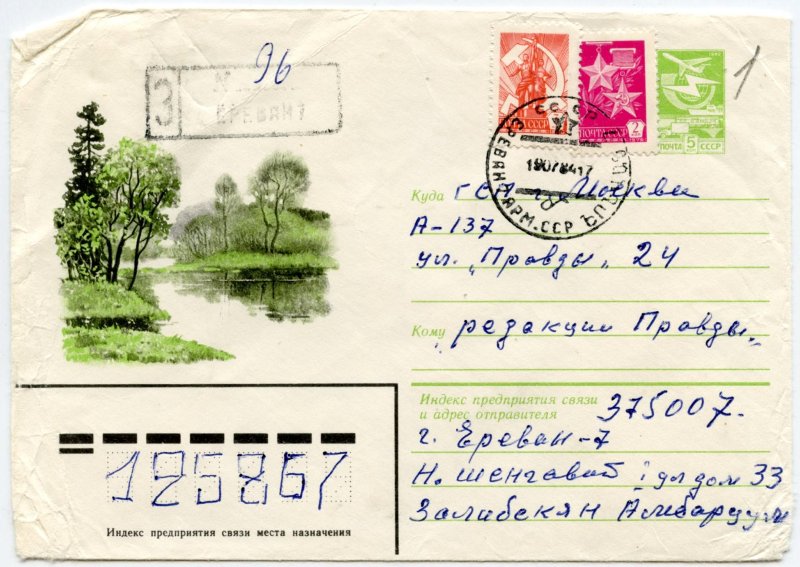 96
З
ЕРЕВАН 7
1
СССР
ПОЧТА СССР 2
1982
ПОЧТА 5 СССР
СССР
ЕРЕВАН 7 АРМ. ССР
19078417
Куда ГСП г. Москва
А-137
ул. "Правды" 24
Кому "редакции Правды"
Индекс предприятия связи
и адрес отправителя 375007.
г. Ереван-7
Н. Шенгавит 1 ул дом 33
Залибекян Амбарцум
125867
Индекс предприятия связи места назначения